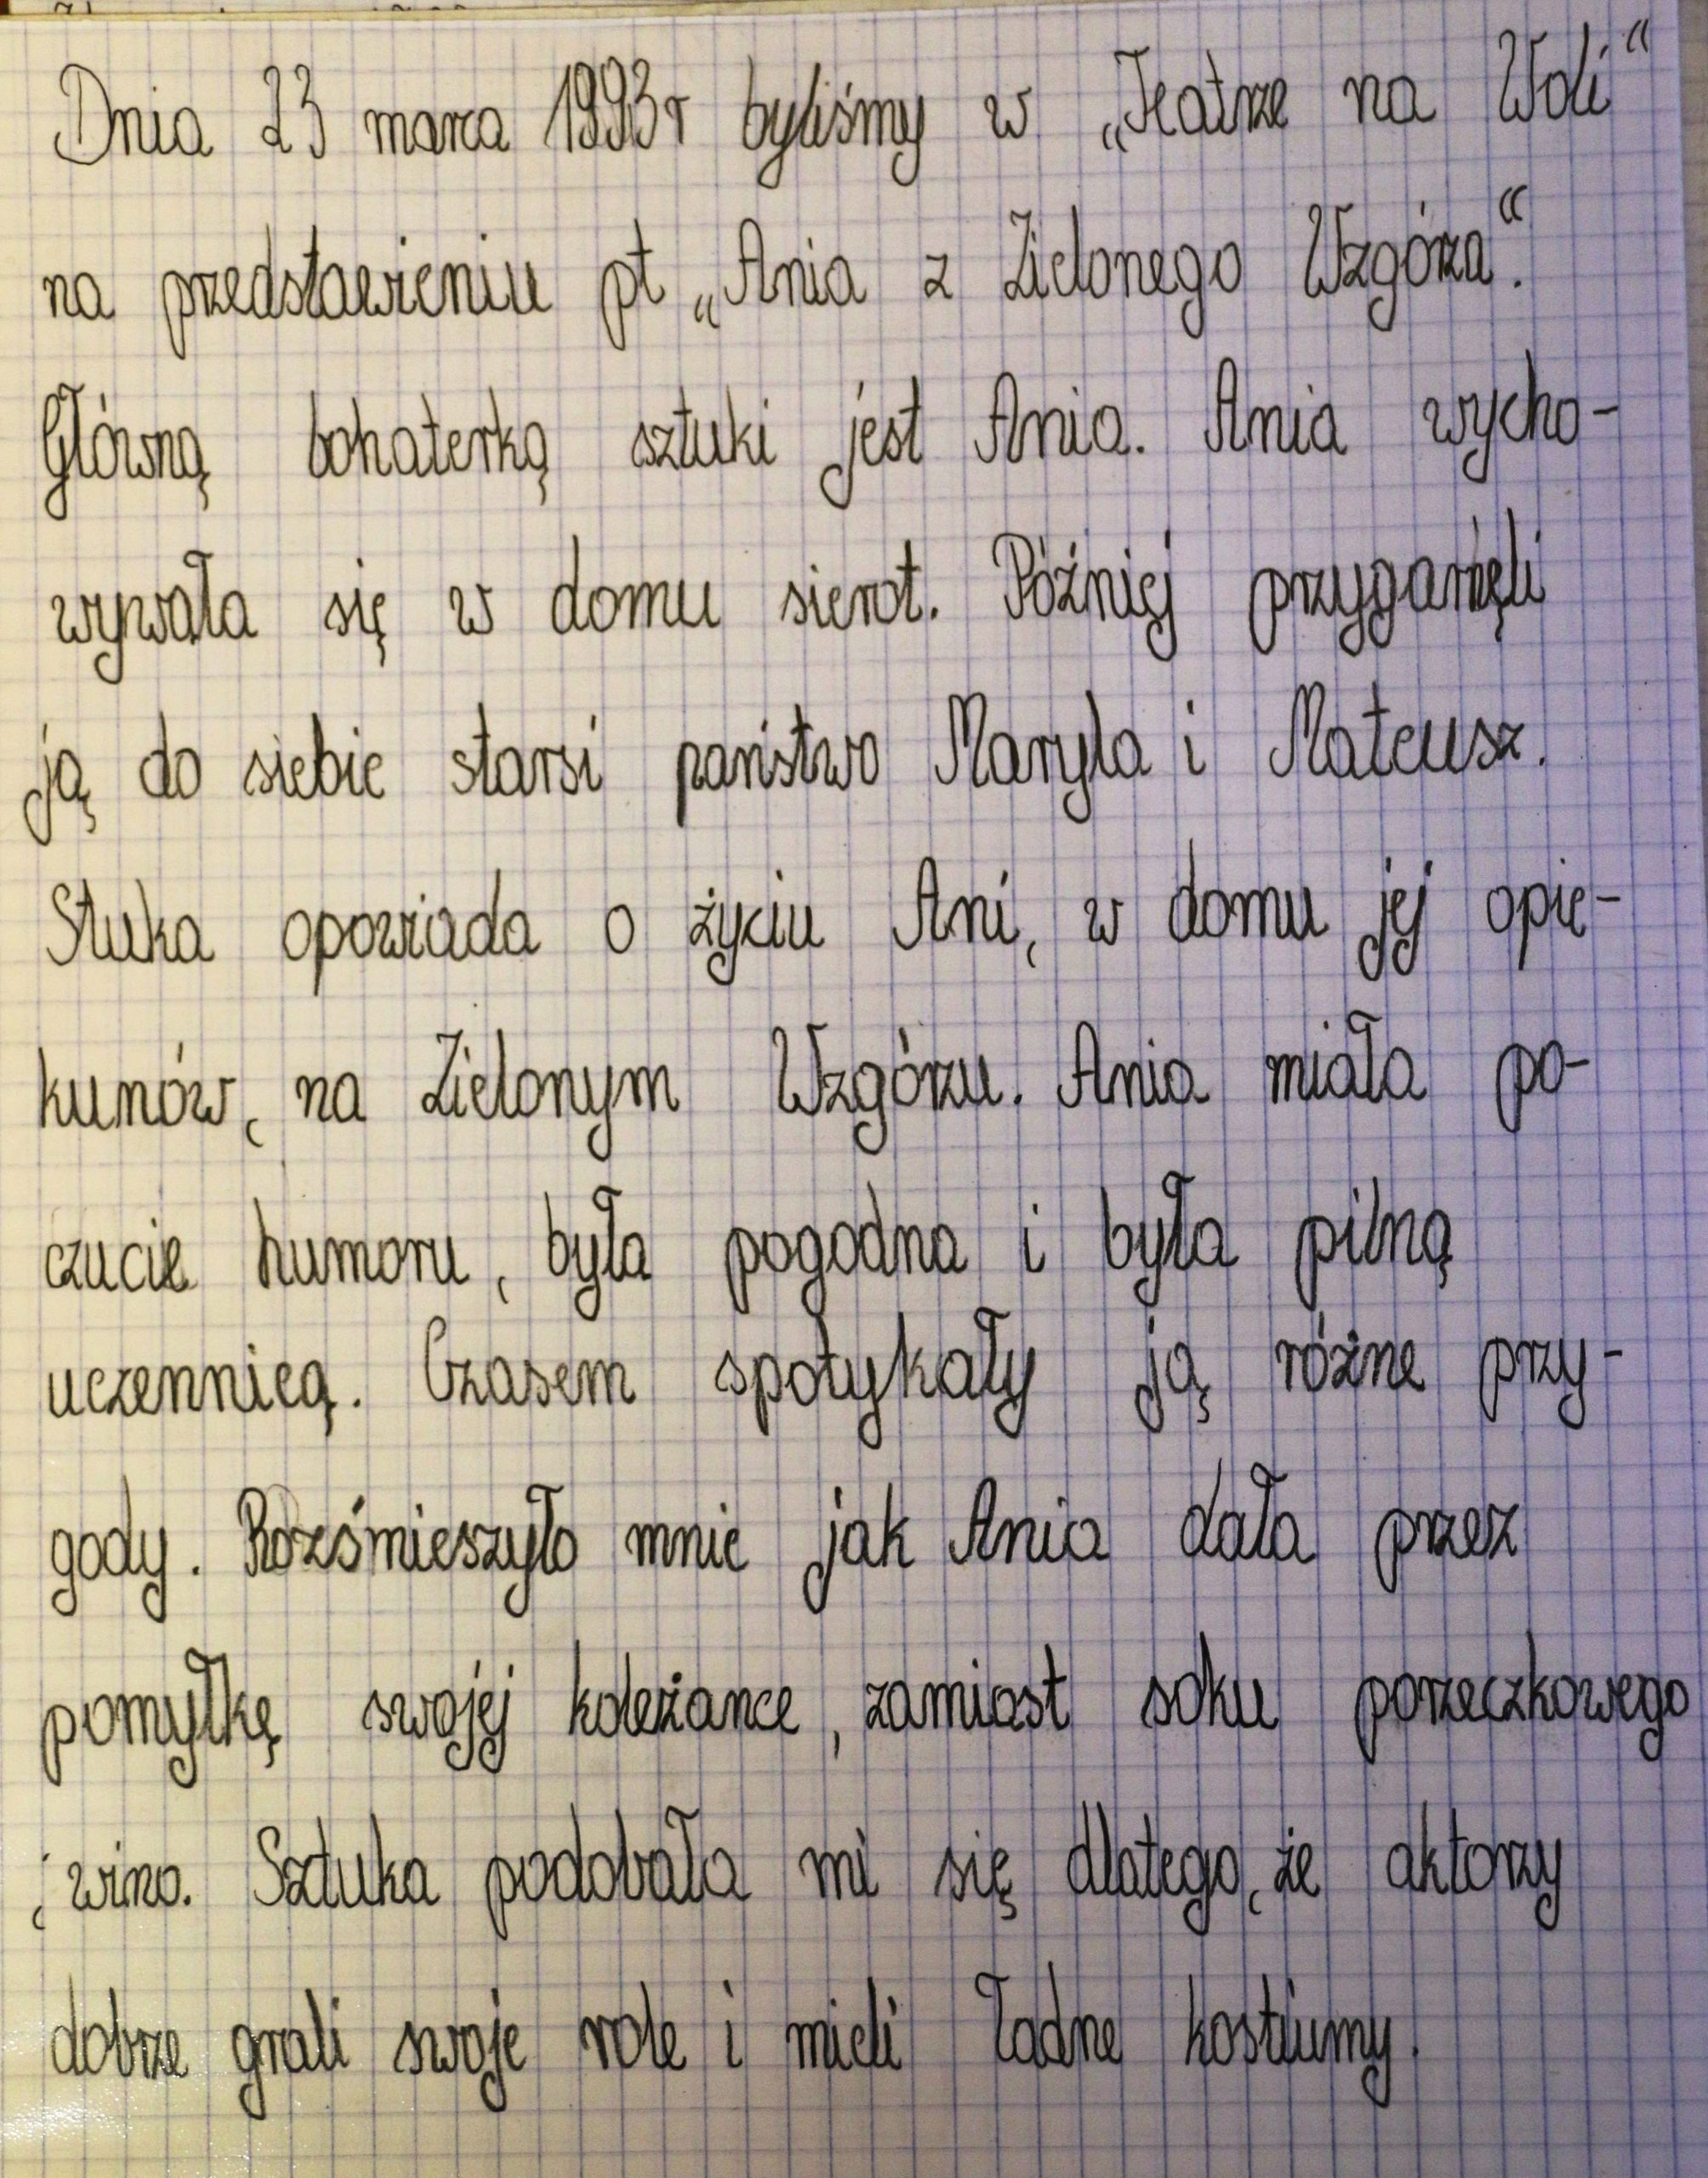 Dnia 23 marca 1993r byliśmy w „Teatrze na Woli“
na przedstawieniu pt „Ania z Zielonego Wzgórza“.
Główną bohaterką sztuki jest Ania. Ania wycho-
wywała się w domu sierot. Później przygarnęli
ją do siebie starsi państwo Maryla i Mateusz.
Stuka opowiada o życiu Ani, w domu jej opie-
kunów, na Zielonym Wzgórzu. Ania miała po-
czucie humoru, była pogodna i była pilną
uczennicą. Czasem spotykały ją różne przy-
gody. Rozśmieszyło mnie jak Ania dała przez
pomyłkę swojej koleżance, zamiast soku porzeczkowego
; wino. Sztuka podobała mi się dlatego, że aktorzy
dobrze grali swoje role i mieli ładne kostiumy.